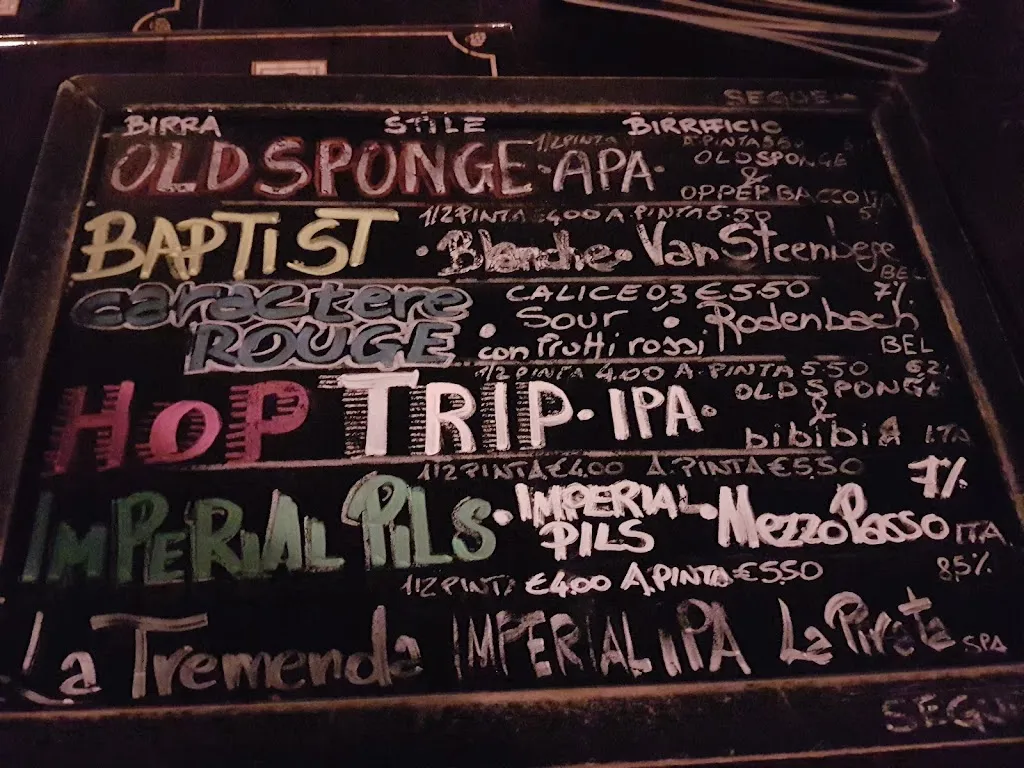 SEGUE
BIRRA STILE BIRRIFICIO
1/2 PINTA A.PINTA 5.50
OLD SPONGE · APA · OLD SPONGE
&
OPPERBACCO ITA
1/2 PINTA 4.00 A.PINTA 5.50 5%
BAPTIST · Blanche · Van Steenbege
BEL
CALICE 0,3 €5.50 7%
Caractere ROUGE · Sour · Rodenbach
con frutti rossi BEL
1/2 PINTA 4.00 A.PINTA 5.50
HOP TRIP · IPA · OLD SPONGE
&
bibibir ITA
1/2 PINTA €4.00 A.PINTA €5.50 7%
IMPERIAL PILS · IMPERIAL PILS · MezzoPasso ITA
1/2 PINTA €4.00 A.PINTA €5.50 8,5%
La Tremenda IMPERIAL IPA La Pirata SPA
SEGUE